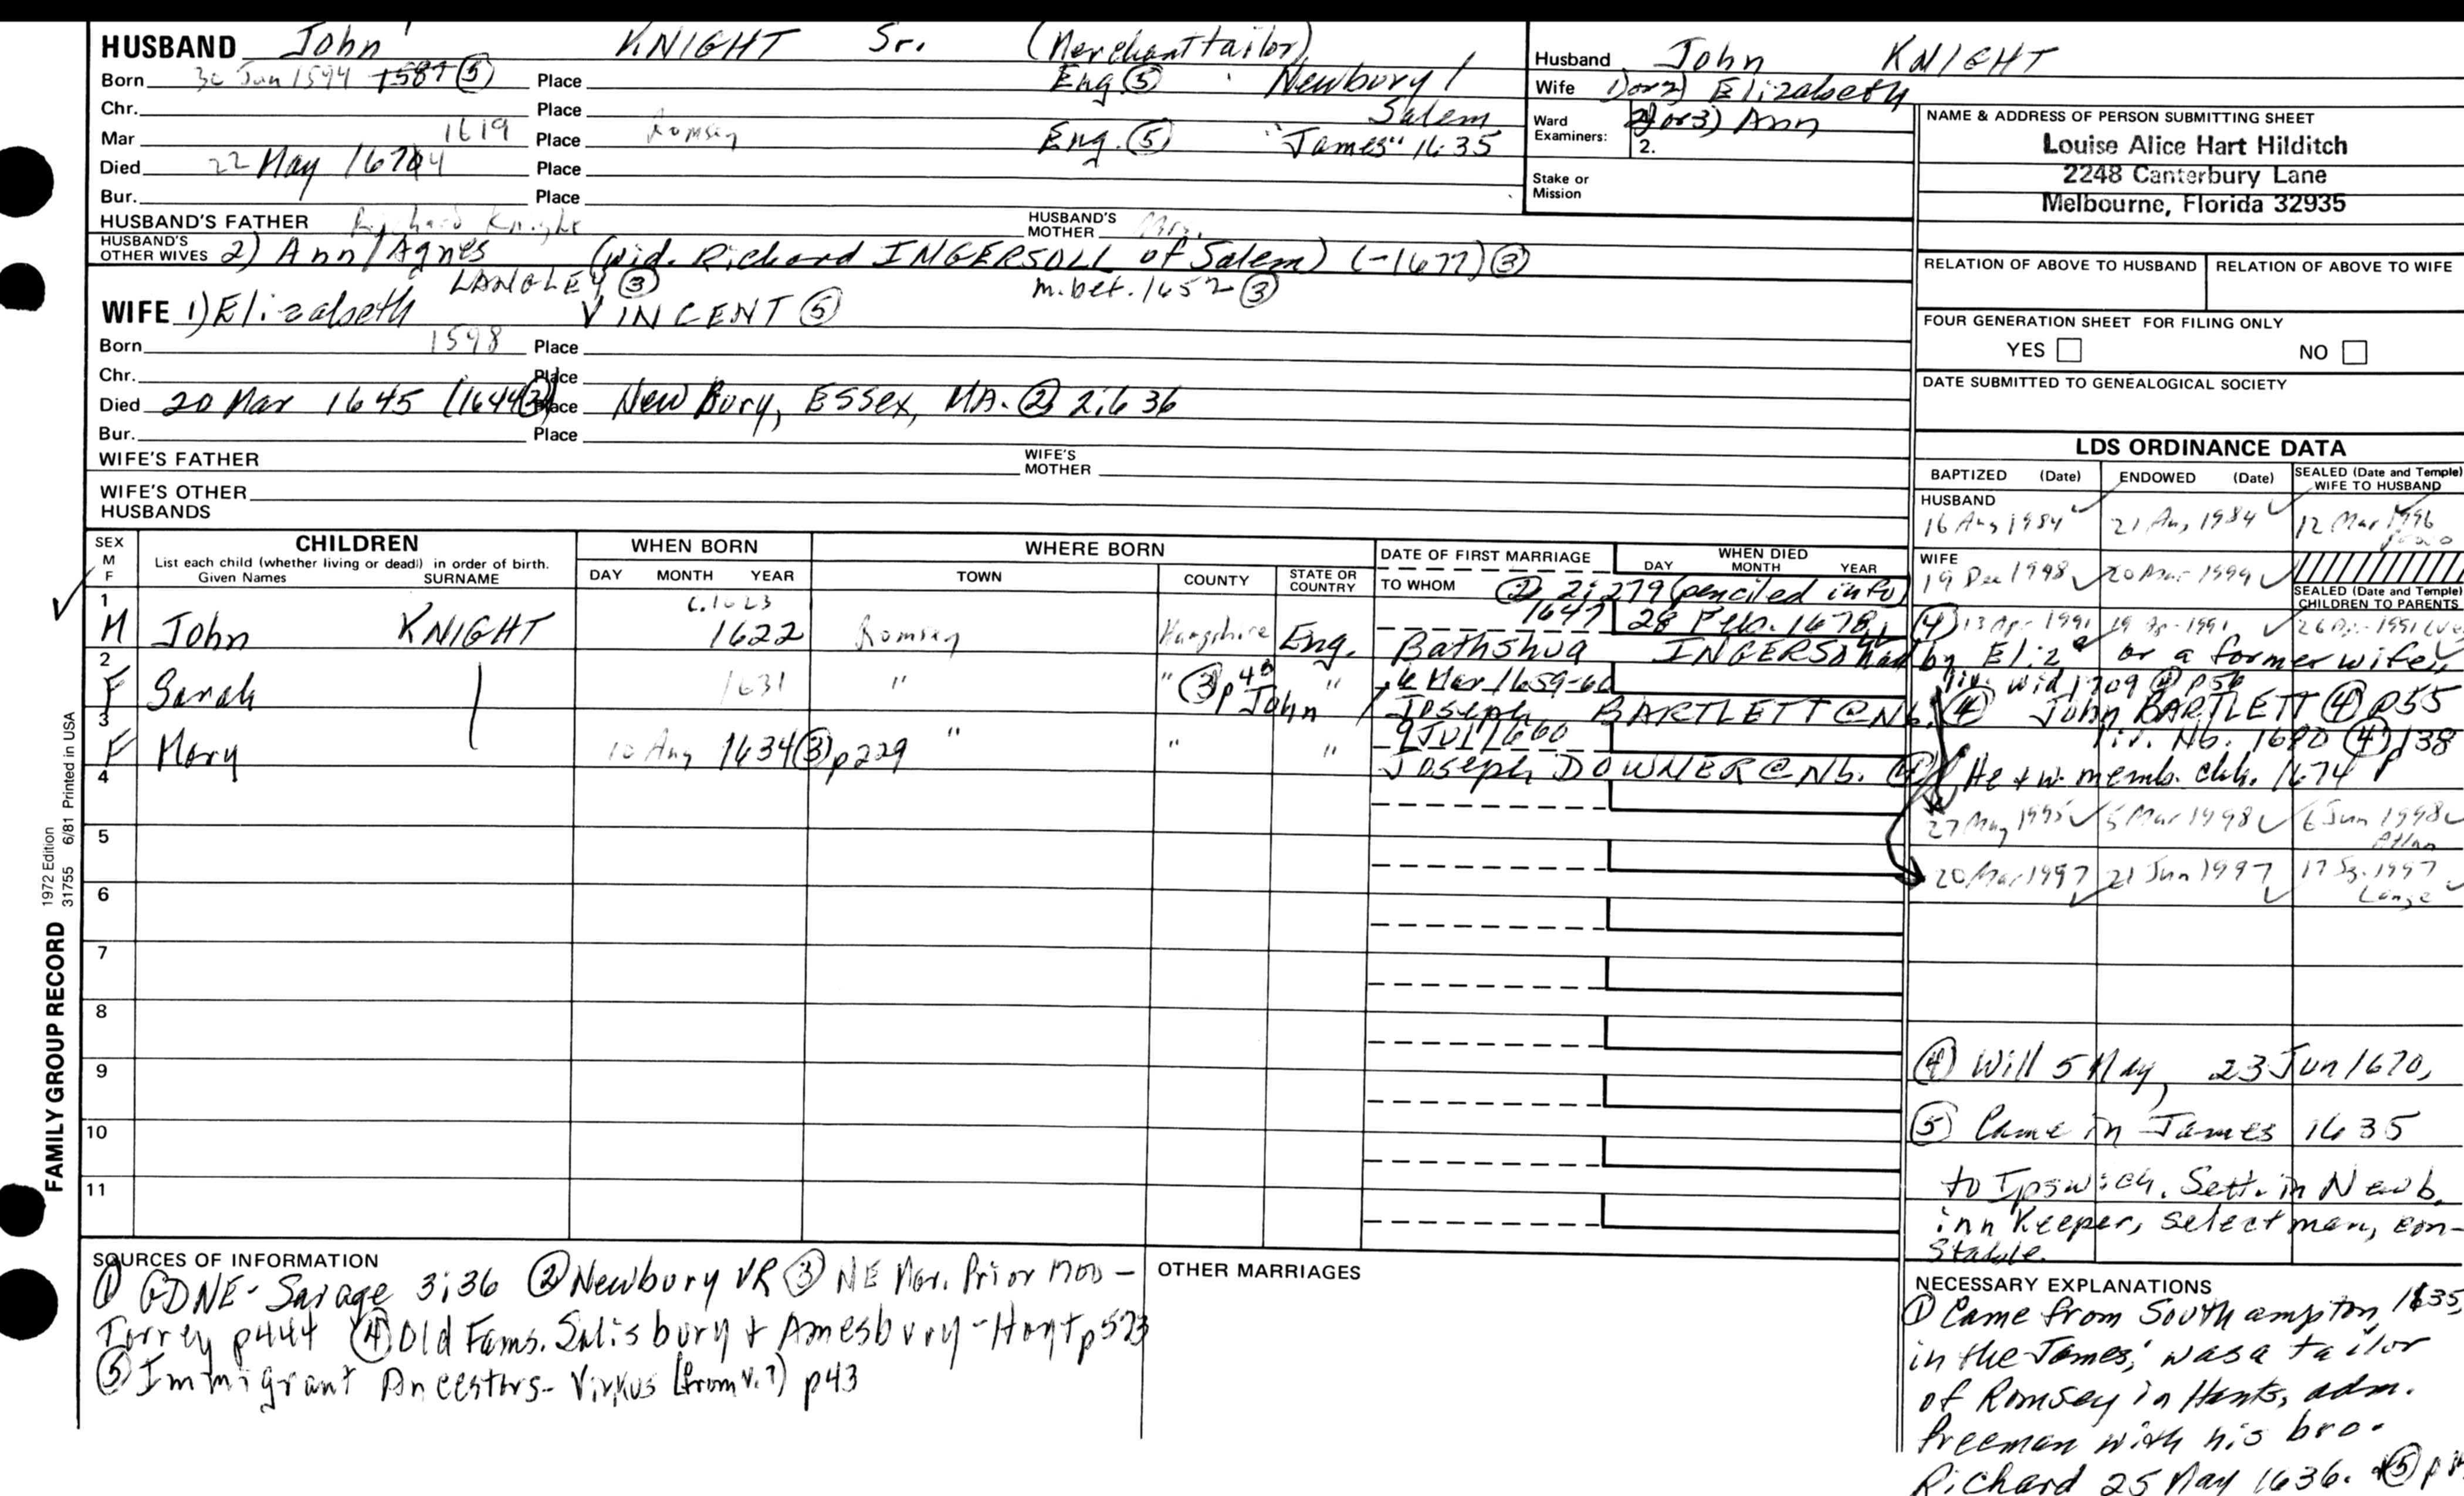 HUSBAND John KNIGHT Sr. (Merchant tailor)
Born 30 Jun 1594 1587 (5) Place Eng (5) Newbury /
Chr. Place Salem
Mar 1619 Place Romsey Eng. (5) "James" 1635
Died 22 May 1670 4 Place
Bur. Place
HUSBAND'S FATHER Richard Knight HUSBAND'S MOTHER Mrs.
HUSBAND'S OTHER WIVES 2) Ann/Agnes (wid. Richard INGERSOLL of Salem) (-1677) (3)
LANGLEY (3) m. bef. 1652 (3)
WIFE 1) Elizabeth VINCENT (5)
Born 1598 Place
Chr. Place
Died 20 Mar 1645 (1644 (3)) Place New Bury, Essex, MA. (2) 2:636
Bur. Place
WIFE'S FATHER WIFE'S MOTHER
WIFE'S OTHER HUSBANDS
Husband John KNIGHT
Wife 1) or 2) Elizabeth
Ward Examiners: 2) or 3) Ann
2.
Stake or Mission
NAME & ADDRESS OF PERSON SUBMITTING SHEET
Louise Alice Hart Hilditch
2248 Canterbury Lane
Melbourne, Florida 32935
RELATION OF ABOVE TO HUSBAND RELATION OF ABOVE TO WIFE
FOUR GENERATION SHEET FOR FILING ONLY
YES NO
DATE SUBMITTED TO GENEALOGICAL SOCIETY
LDS ORDINANCE DATA
BAPTIZED (Date) ENDOWED (Date) SEALED (Date and Temple) WIFE TO HUSBAND
HUSBAND
16 Aug 1984 21 Aug 1984 12 Mar 1996
WIFE
19 Dec 1998 20 Mar 1999
SEALED (Date and Temple) CHILDREN TO PARENTS
SEX M F CHILDREN WHEN BORN WHERE BORN DATE OF FIRST MARRIAGE WHEN DIED
List each child (whether living or dead) in order of birth.
Given Names SURNAME DAY MONTH YEAR TOWN COUNTY STATE OR COUNTRY TO WHOM DAY MONTH YEAR
(2) 2:279 (penciled info)
1 c. 1623 1647 28 Feb. 1678 (4) 13 Apr 1991 19 Apr 1991 26 Apr 1991
M John KNIGHT 1622 Romsey Hampshire Eng. Bathshua INGERSOLL had by Eliz or a former wife,
2 6 Mar 1659-60 liv. wid 1709 (4) p56
F Sarah 1631 " " (3) p 48 John " Joseph BARTLETT @ Nb. (4) John BARTLETT (4) p55
3 9 Jul 1660 liv. Nb. 1680 (4) p138
F Mary 10 Aug 1634 (3) p229 " " " Joseph DOWNER @ Nb. (4) He + w. memb. chh. 1674
4
27 May 1995 5 Mar 1998 6 Jun 1998
5
20 Mar 1997 21 Jun 1997 17 1997
6
7
8
9
10
11
(4) Will 5 May, 23 Jun 1670,
(5) Came in James 1635
to Ipswich. Sett. in Newb.
inn Keeper, selectman, con-
stable.
SOURCES OF INFORMATION
(1) GDNE - Savage 3:36 (2) Newbury VR (3) NE Mar. Prior 1700 -
Torrey p444 (4) Old Fams. Salisbury + Amesbury - Hoyt p 523
(5) Immigrant Ancestors - Virkus (from v. 7) p43
OTHER MARRIAGES
NECESSARY EXPLANATIONS
(1) Came from Southampton 1635
in the James; was a tailor
of Romsey in Hants, adm.
freeman with his bro.
Richard 25 May 1636. (5)
FAMILY GROUP RECORD 1972 Edition
31755 6/81 Printed in USA